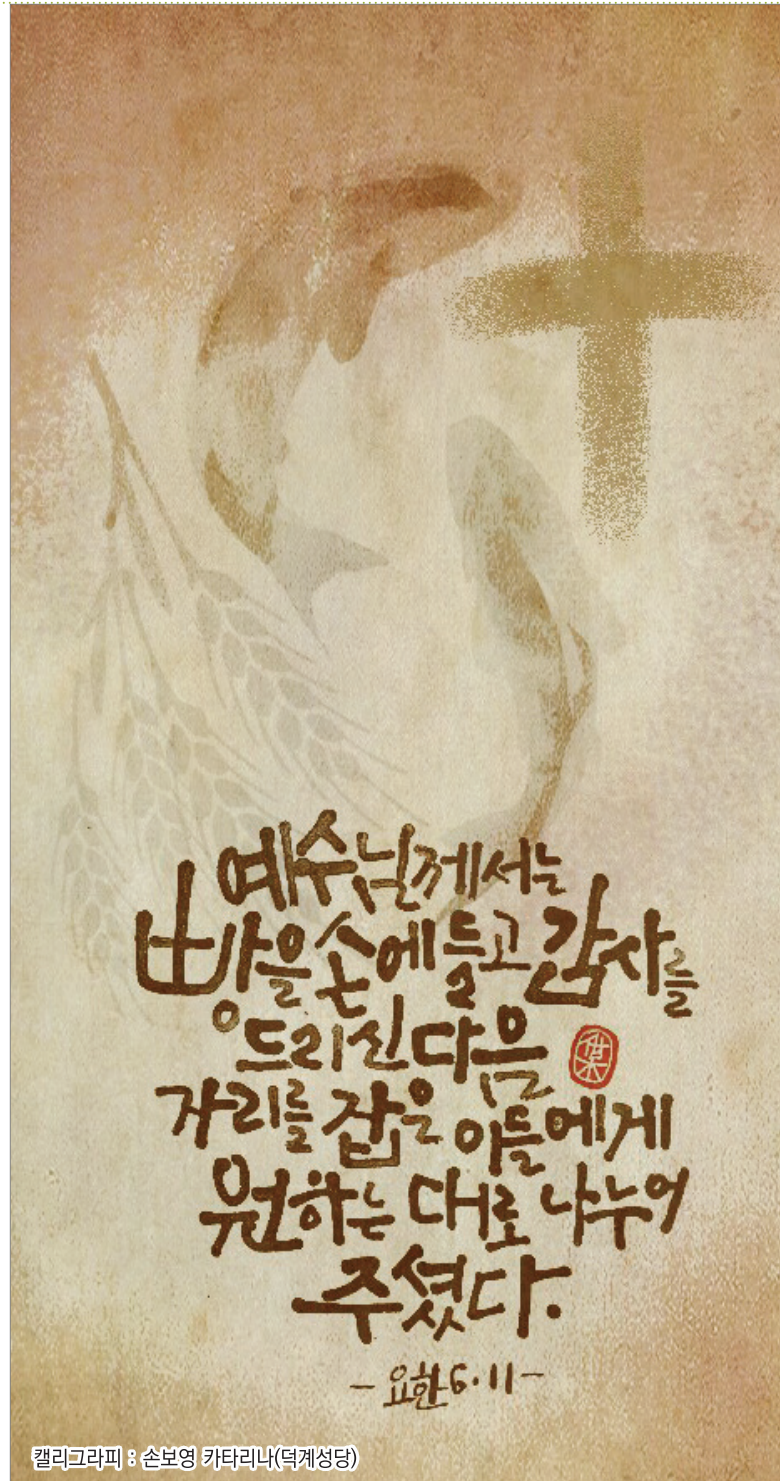 예수님께서는
빵을 손에 들고 감사를
드리신 다음
자리를 잡은 이들에게
원하는 대로 나누어
주셨다.
- 요한 6·11 -
캘리그라피 : 손보영 카타리나(덕계성당)